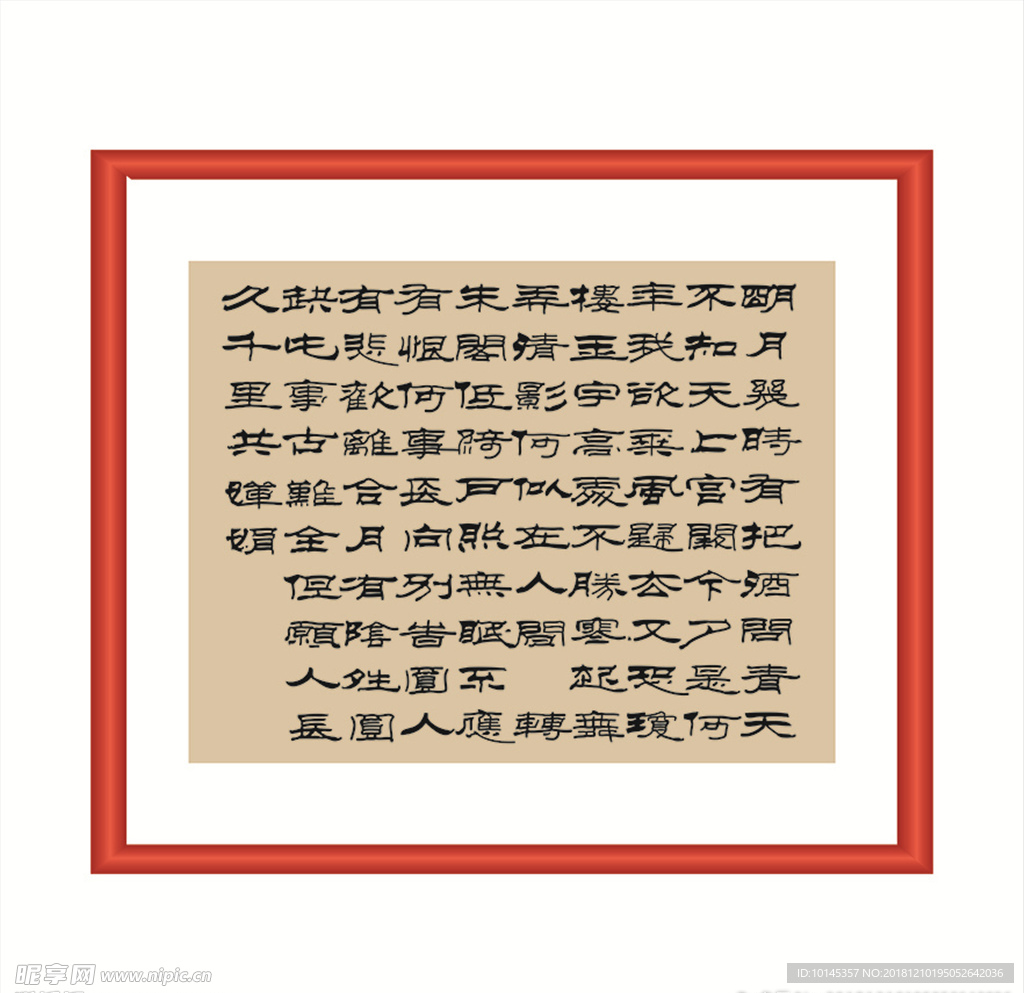 明月幾時有把酒問青天
不知天上宮闕今夕是何
年我欲乘風歸去又恐瓊
樓玉宇高處不勝寒起舞
弄清影何似在人間 轉
朱閣低綺戶照無眠不應
有恨何事長向別旹圓人
有悲歡離合月有陰夝圓
缺此事古難全但願人長
久千里共嬋娟
昵享网 www.nipic.cn
ID:10145357 NO:20181210195052642036